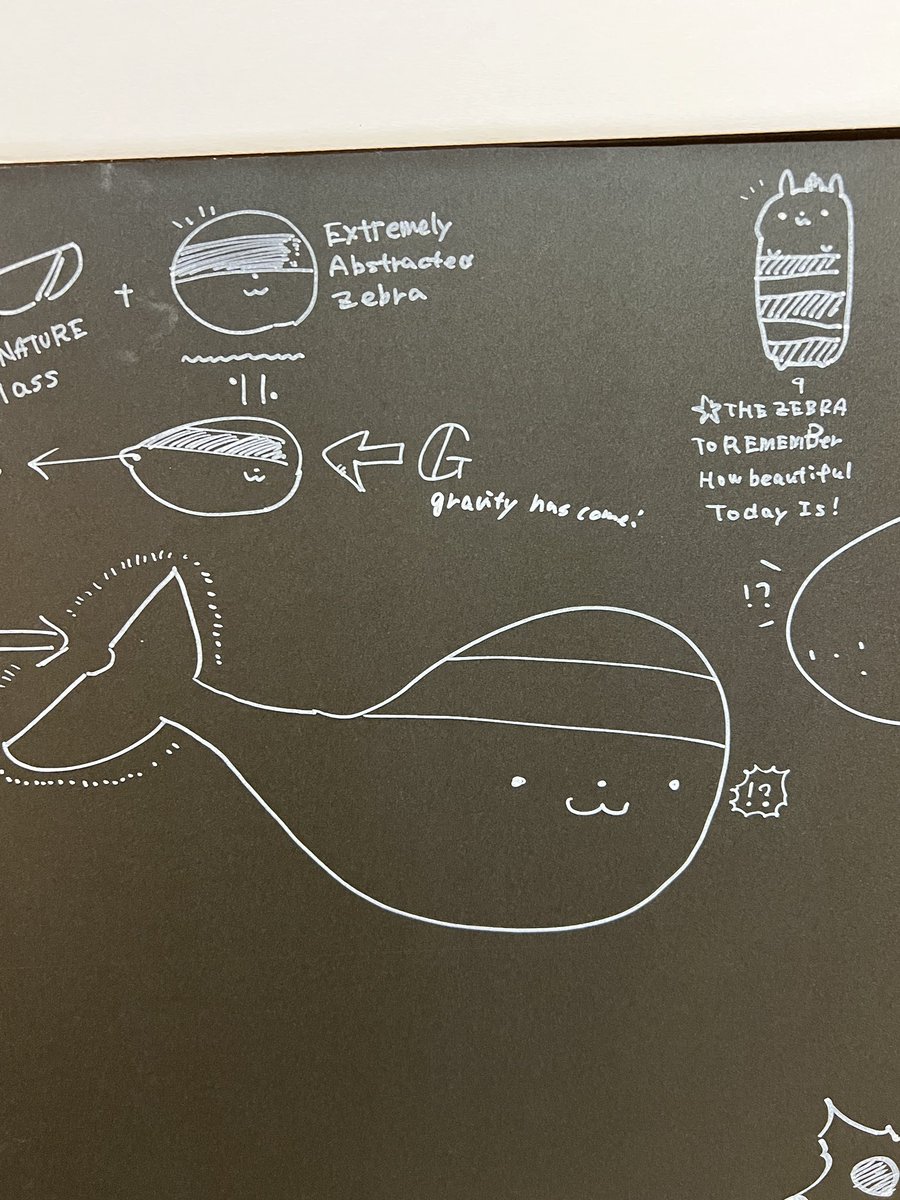 NATURE
lass
+
Extremely
Abstracted
Zebra
G
gravity has come!
☆THE ZEBRA
TO REMEMBer
How beautiful
Today Is!
!?
!?